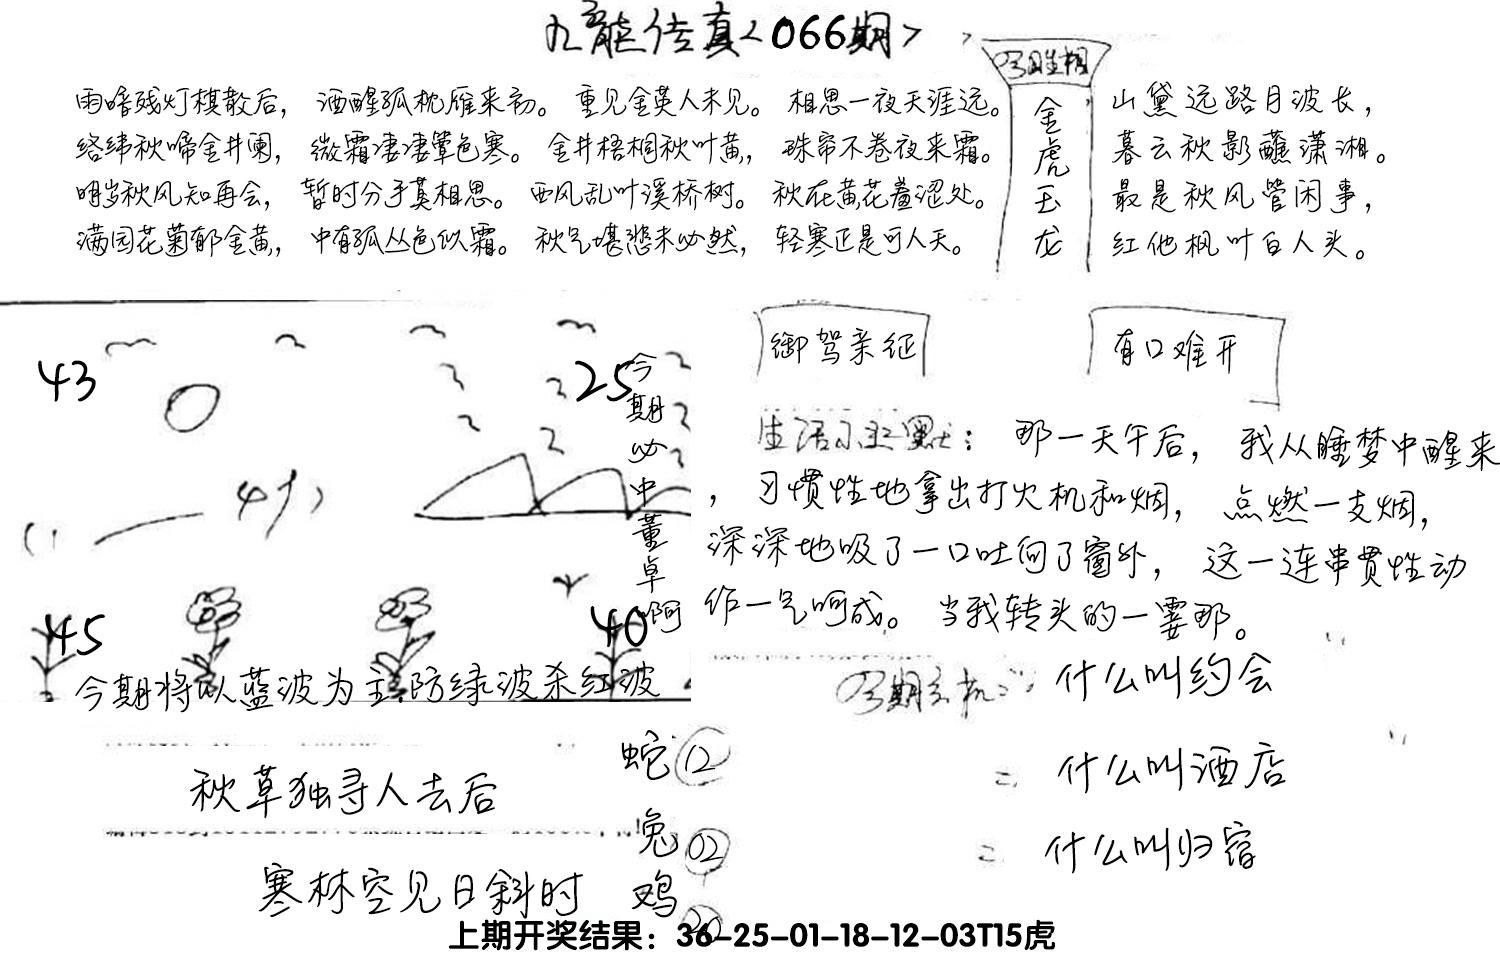 九龙传真<066期>
雨暗残灯棋散后， 酒醒孤枕雁来初。 重见金英人未见。 相思一夜天涯远。
络纬秋啼金井阑， 微霜凄凄簟色寒。 金井梧桐秋叶黄， 珠帘不卷夜来霜。
明岁秋风知再会， 暂时分手莫相思。 西风乱叶溪桥树。 秋在黄花羞涩处。
满园花菊郁金黄， 中有孤丛色似霜。 秋气堪悲未必然， 轻寒正是可人天。
金虎玉龙
山黛远路月波长，
暮云秋影蘸潇湘。
最是秋风管闲事，
红他枫叶白人头。
43
25
45
40
今期必中董卓啊
今期将以蓝波为主防绿波杀红波
御驾亲征
有口难开
那一天午后， 我从睡梦中醒来
， 习惯性地拿出打火机和烟， 点燃一支烟，
深深地吸了一口吐向了窗外， 这一连串贯性动
作一气呵成。 当我转头的一霎那。
什么叫约会
什么叫酒店
什么叫归宿
秋草独寻人去后
寒林空见日斜时
蛇 12
兔 02
鸡 20
上期开奖结果：36-25-01-18-12-03T15虎